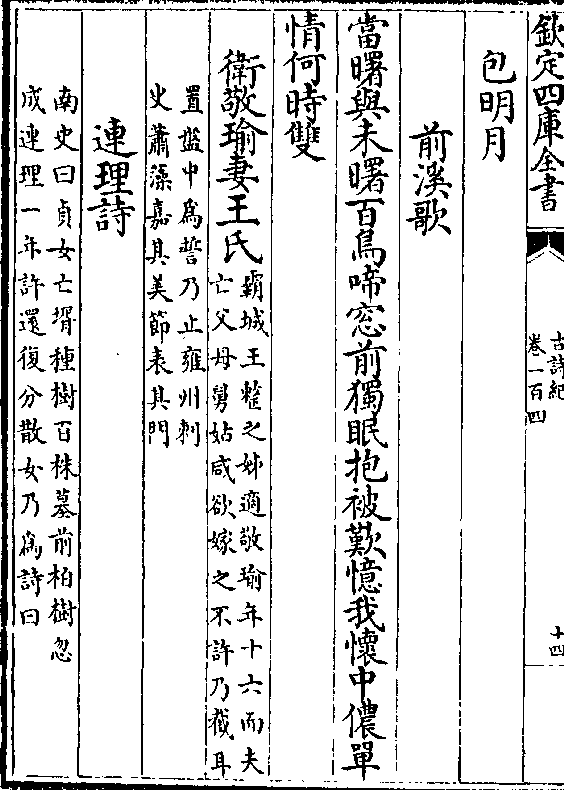 欽定四庫全書
古詩紀
卷一百四
十四
包明月
前溪歌
當曙與未曙百鳥啼窓前獨眠抱被歎憶我懷中儂單
情何時雙
衛敬瑜妻王氏
霸城王整之姊適敬瑜年十六而夫
亡父母舅姑咸欲嫁之不許乃截耳
置盤中為誓乃止雍州刺
史蕭藻嘉其美節表其門
連理詩
南史曰貞女亡壻種樹百株墓前柏樹忽
成連理一年許還復分散女乃為詩曰